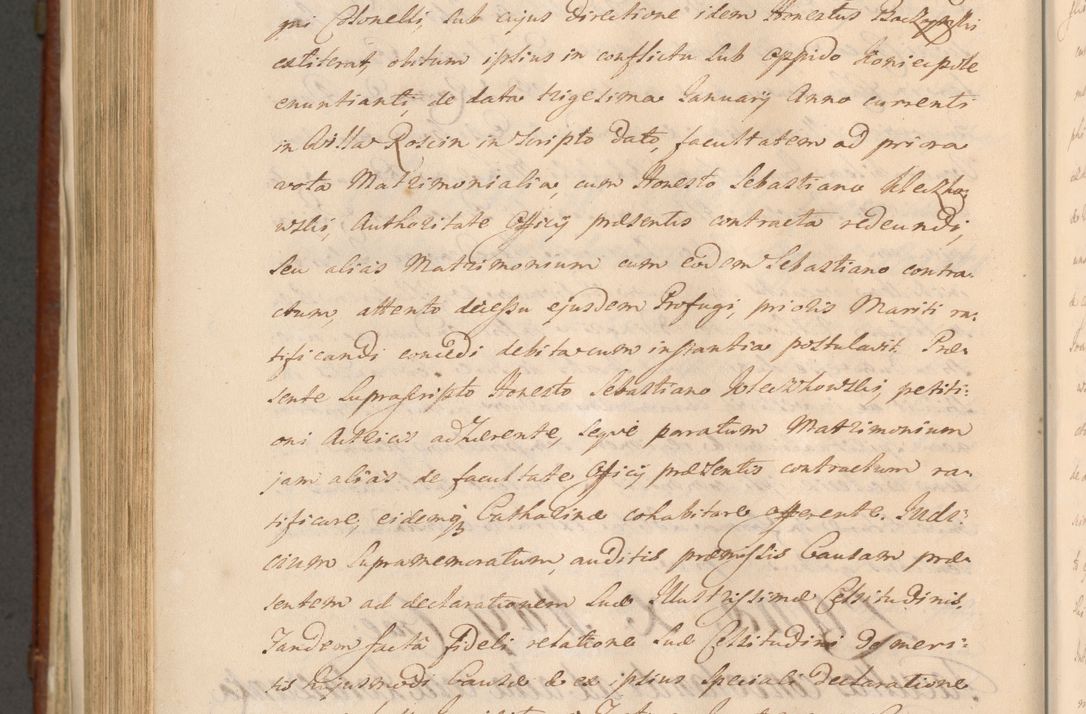 gni Colonelli, sub cujus directione idem Honestus Baczynski
extiterat, obitum ipsius in conflictu sub oppido Koniecpole
enuntianti, de data trigesima January Anno currenti
in Villa Roscin in scripto dato, facultatem ad priora
vota Matrimonialia, cum Honesto Sebastiano Kleczko,
wski, Authoritate Officij præsentis contracta redeundi,
seu alias Matrimonium cum eodem Sebastiano contra.
ctum, attento decessu ejusdem Profugi, prioris Mariti ra,
tificandi concedi debita cum instantia postulavit. Præ,
sente suprascripto Honesto Sebastiano Kleczkowski, petiti:
oni Actricis adhærente, seque paratum Matrimonium
jam alias de facultate Officij præsentis contractum ra,
tificare, eidemq Catharinæ cohabitare offerente. Judi,
cium supramemoratum, auditis præmissis Causam præ,
sentem ad declarationem suæ Illustrissimæ Celsitudinis,
Tandem facta fideli relatione suæ Celsitudini de meri,
tis hujusmodi Causæ & ex ipsius speciali declaratione